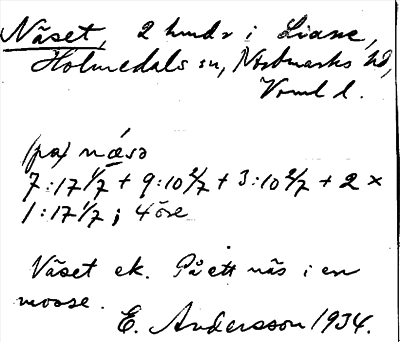 Näset, 2 hmdr i Liane,
Holmedals sn, Nordmarks hd,
Vrml l.
(på) næ̀sə
7:17 1/7 + 9:10 2/7 + 3:10 2/7 + 2 ×
1:17 1/7; 4 öre
Näset ek. På ett näs i en
mosse.
E. Andersson 1934.